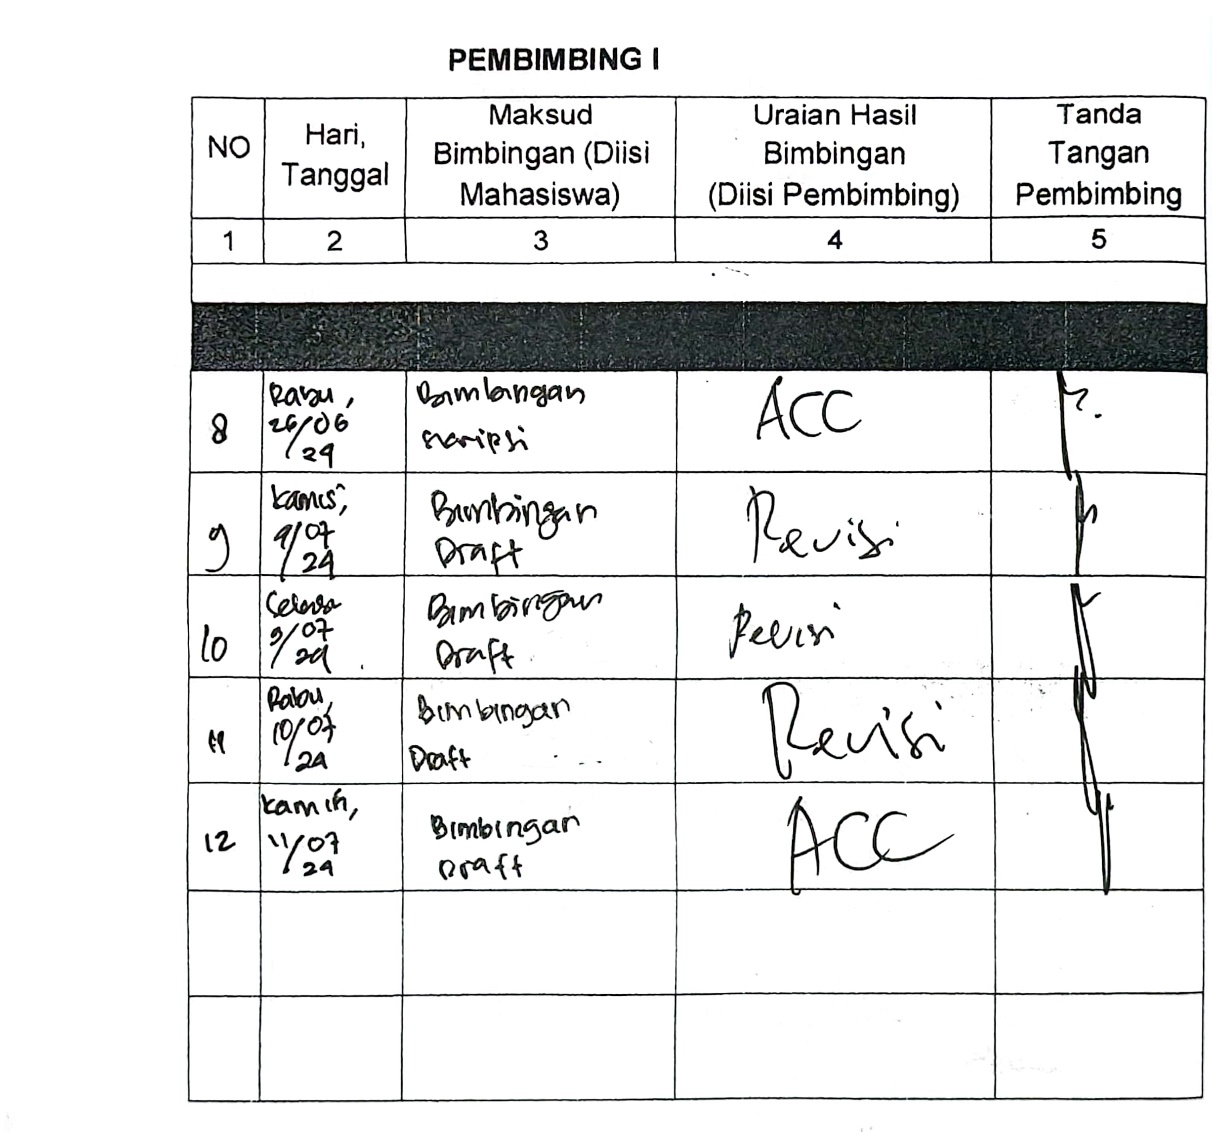 PEMBIMBING I
NO
Hari,
Tanggal
Maksud
Bimbingan (Diisi
Mahasiswa)
Uraian Hasil
Bimbingan
(Diisi Pembimbing)
Tanda
Tangan
Pembimbing
1 2 3 4 5
8
Rabu,
26/06
/24
Bimbingan
skripsi
ACC
9
Kamis,
4/07
/24
Bimbingan
Draft
Revisi
10
Selasa
9/07
/24
Bimbingan
Draft
Revisi
11
Rabu,
10/07
/24
Bimbingan
Draft
Revisi
12
Kamis,
11/07
/24
Bimbingan
Draft
ACC